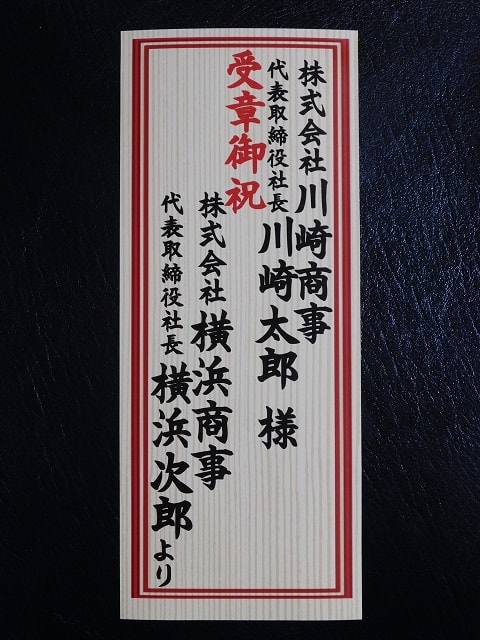 株式会社川崎商事
代表取締役社長川崎太郎 様
受章御祝
株式会社横浜商事
代表取締役社長横浜次郎より